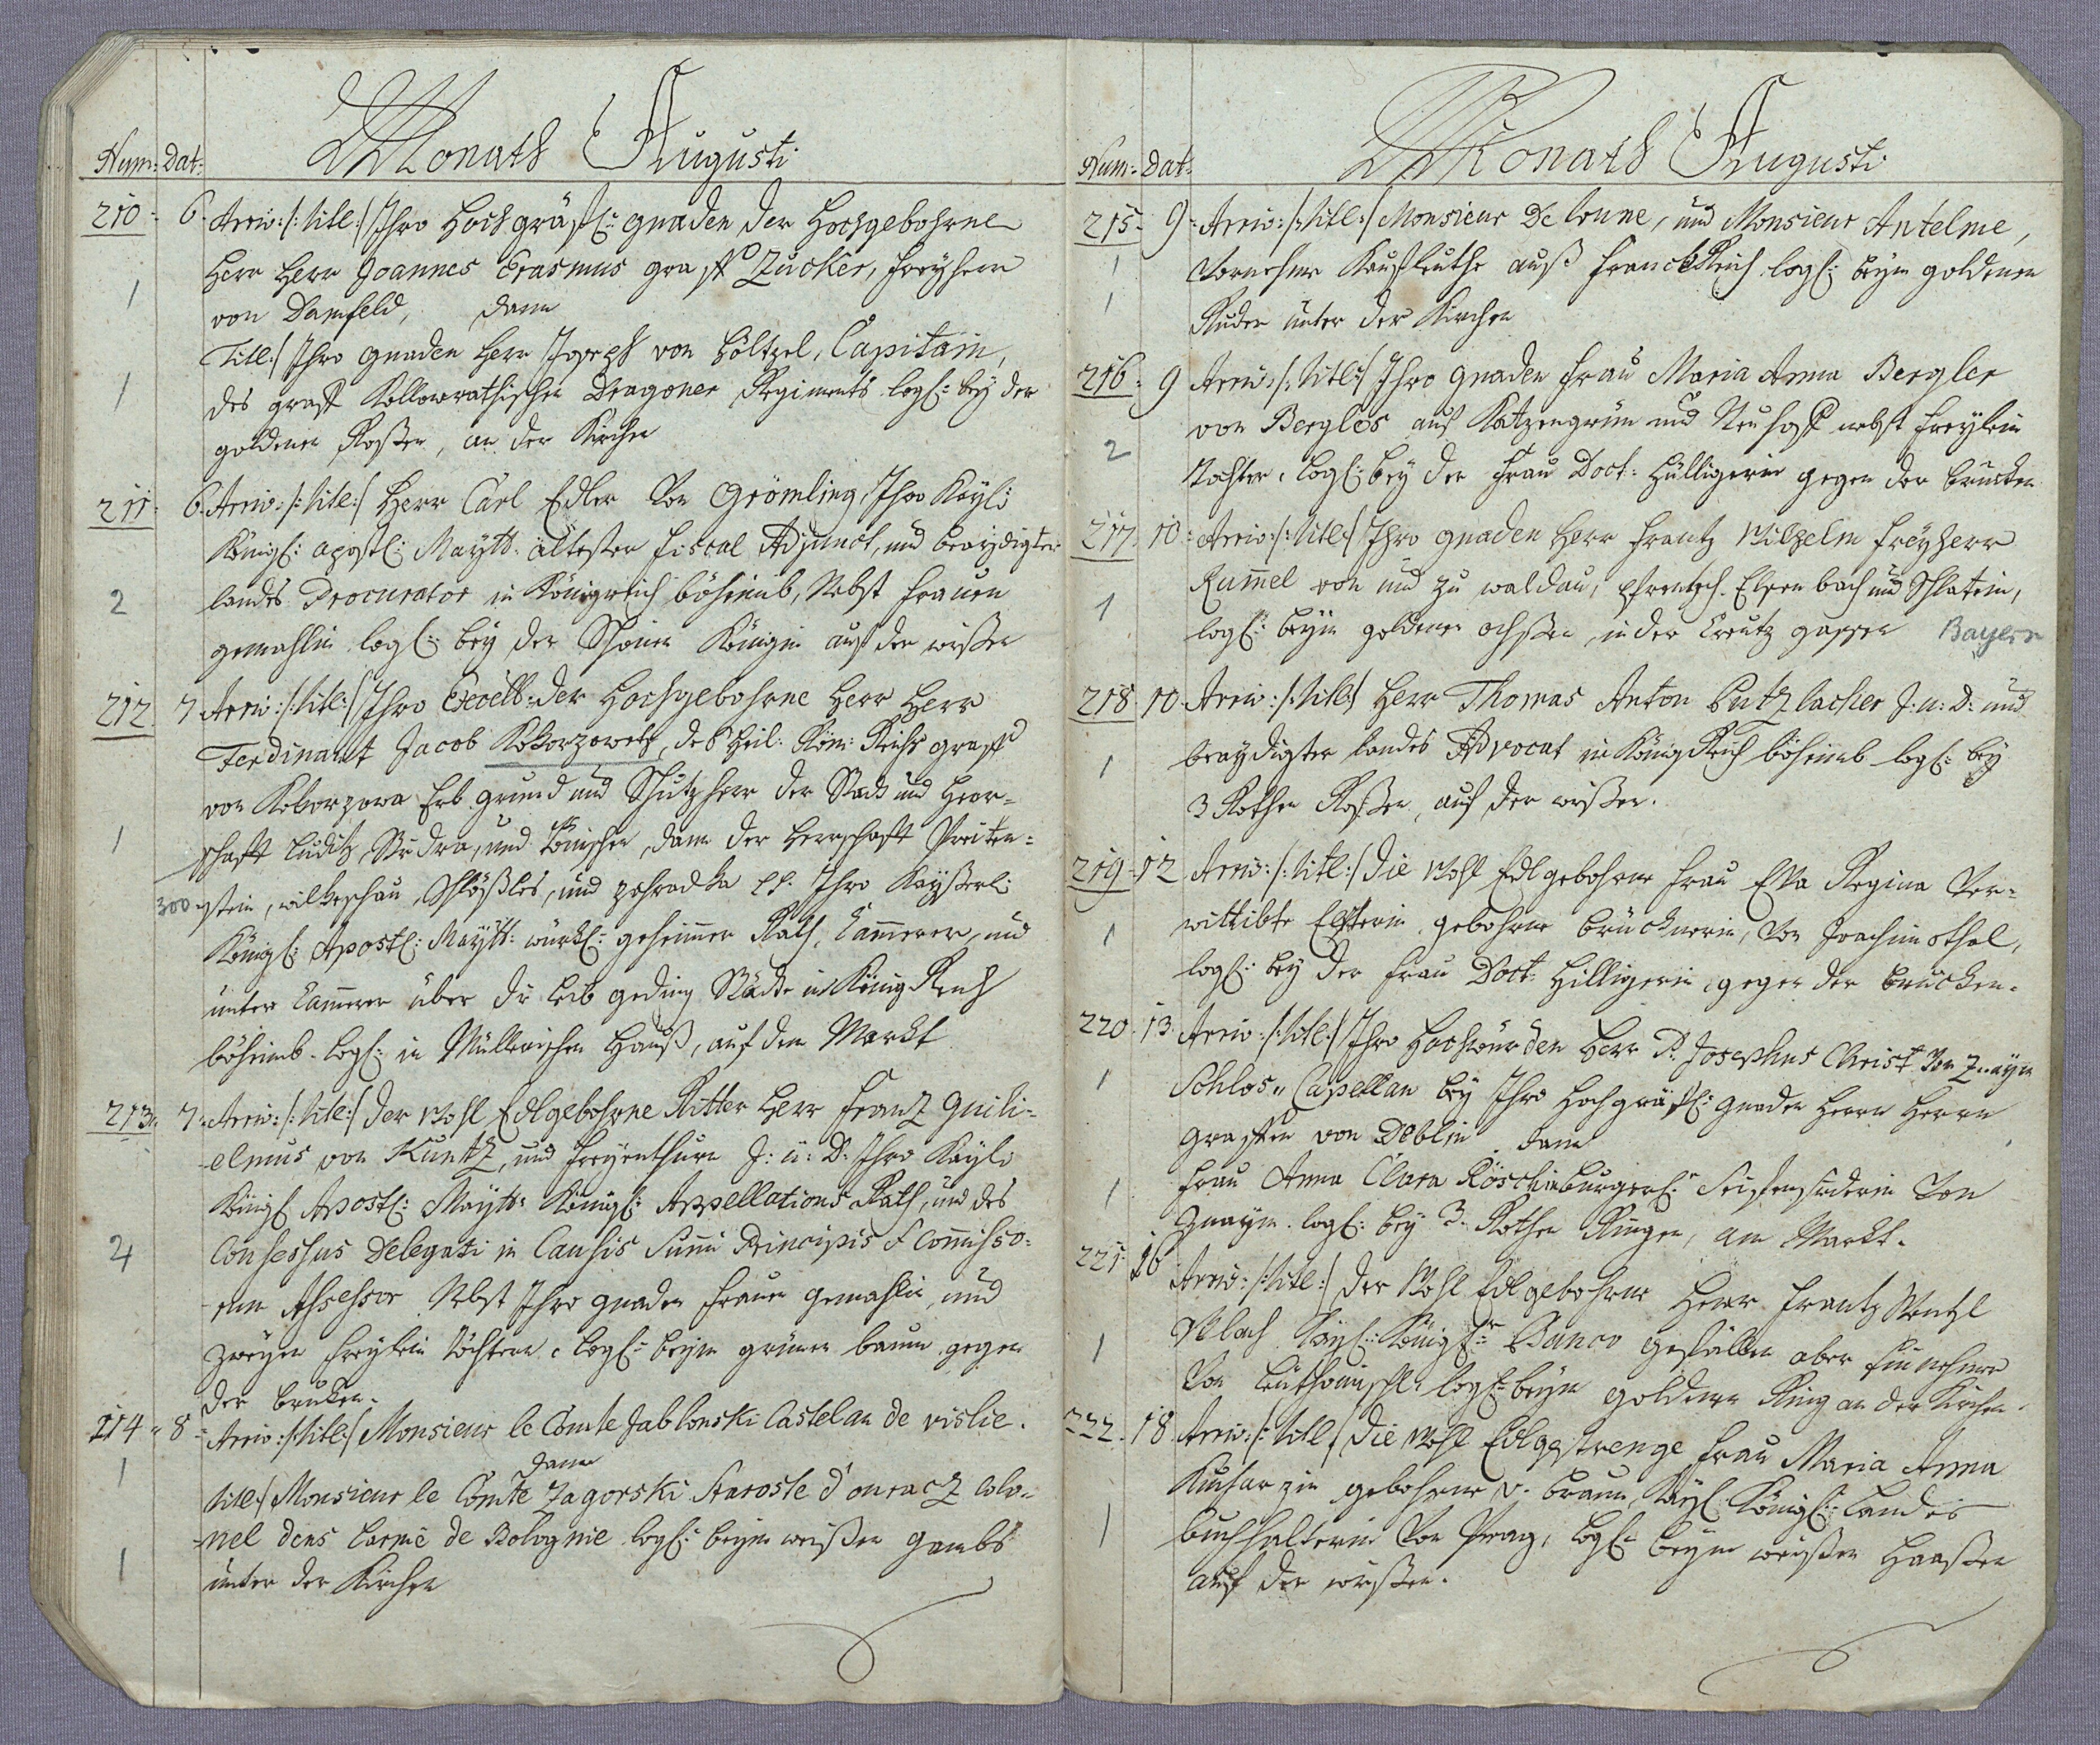 Monath Augusti
Num: Dat:
210 6. Arriv: /: titl: / Ihro Hochgräfl: gnaden der Hochgebohrne
1 Herr Herr Joannes Erasmus graff Zucker, Freyherr
von Damfeld, dann
Titl:/ Ihro gnaden Herr Joseph von Höltzel, Capitain,
1 des graff Kollowrathischen Dragoner Regiments logl: bey der
goldenen Rosen, an der Kirchen
211 6. Arriv: /: titl: / Herr Carl Edler Von Grömling, Ihro Kayl:
Königl: apostl: Maytt: ältester fiscal Adjunct, und beaydigter
2 landes Procurator in Königreich böheimb, Nebst Frauen
gemahlin logl: bey der Schönen Königin auf der wißen
212 7 Arriv: /: titl: / Ihro Excell: der Hochgebohrne Herr Herr
Ferdinandt Jacob Kokorzowetz, des Heil: Röm: Reichs graff
von Kokorzowa Erb grund und Schutzherr der Stadt und Herr-
1 schafft Luditz, Studra, und dann der Herrschafft Preiten-
300 stein, wilkeschau, Schlößles, und zahradka pp. Ihro Kayßerl:
Königl: Apostl: Maytt: würkl: geheimer Rath, Cammerer, und
unter Cammerer über die leib geding Städte in König Reich
böheimb. logl: in Müllerischen Hauß, auf dem Markt
213 7. Arriv: /: titl: / der Wohl Edlgebohrne Ritter Herr Frantz Guili-
elmus von Kuntz, und Freyenthurn J: u: D: Ihro Kayl:
Königl: Apostl: Maytt: Königl: Appellations Rath, und des
4 Consessus Delegati in Causis Sumi Principis & Commisso-
rum Assessor Nebst Ihro gnaden Frauen gemahlin, und
zweyen Freylein Töchtern logl: beym grünen baum, gegen
der brucken.
214 8 Arriv: /: titl: / Monsieur le Comte Jablonski Castelan de vislie.
1 dann
titl:/ Monsieur le Comte Zagorski Staroste d'ouracz Colo-
nel dens Larmé de Bolognie logl: beym weißen gambs
1 unter der Kirchen
Monath Augusti
Num: Dat:
215 9. Arriv: /: titl: / Monsieur De Coune, und Monsieur Antelme,
1 Vornehme Kaufleuthe auß FranckReich logl: beym goldenen
1 Ruder unter der Kirchen
216 9 Arriv: /: titl: / Ihro gnaden Frau Maria Anna Bergler
von Berglos auf Katzengrün und Neuhoff nebst Freylein
2 Tochter, logl: bey der Frau Doct: Hilligerin gegen der brucken
217 10. Arriv: /: titl: / Ihro gnaden Herr Frantz Wilhelm Freyherr
Rumel von und zu waldau, pfrentsch Elsenbach und Schlatein,
1 logl: beym goldenen ochßen, in der Creutz gassen Bayern
218 10. Arriv: /: titl: / Herr Thomas Anton Putzlacher J: u: D: und
1 beaydigter landes Advocat in KönigReich böheimb logl: bey
3 Rothen Roßen, auf der wißen.
219 12 Arriv: /: titl: / die Wohl Edlgebohrne Frau Eva Regina Ver-
1 wittibte gebohrne Brucknerin, Von Joachimsthal,
logl: bey der Frau Doct: Hilligerin, gegen der brucken.
220. 13. Arriv: /: titl: / Ihro Hochwürden Herr P. Josephus Christ Von Znaym
1 Schlos-Capellan bey Ihro Hochgräfl: gnaden Herrn Herrn
Graffen von Deblin dann
1 Frau Anna Clara Röschin burgerl: Seiffensiderin Von
Znaym. logl: bey 3. Rothen Ringen, am Markt.
221. 16 Arriv: /: titl: / der Wohl Edlgebohrne Herr Frantz Wentzl
1 Wlach Kayl: Königl: Banco gefällen ober Einnehmer
Von Leuthomischl. logl: beym goldenen Ring an der Kirchen.
222. 18 Arriv: /: titl: / die Wohl Edlgestrenge Frau Maria Anna
Kucharzin gebohrne v. Braun, Kayl: Königl: landes
1 buchhalterin Von Prag, logl: beym weißen Haaßen
auf der wißen.